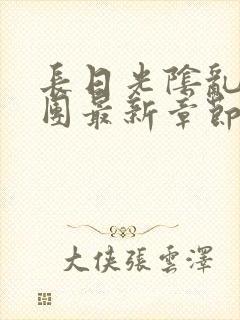 長日光陰亂
團最新章節
大俠張雲澤